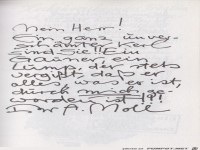 Mein Herr!
Ein ganz unver-
schämter Kerl
sind Sie!! Ein
Gauner, ein
Lump, der stets
vergißt, daß er
alles was er ist,
durch mich ge-
worden ist!!!
Ihr A. Moll